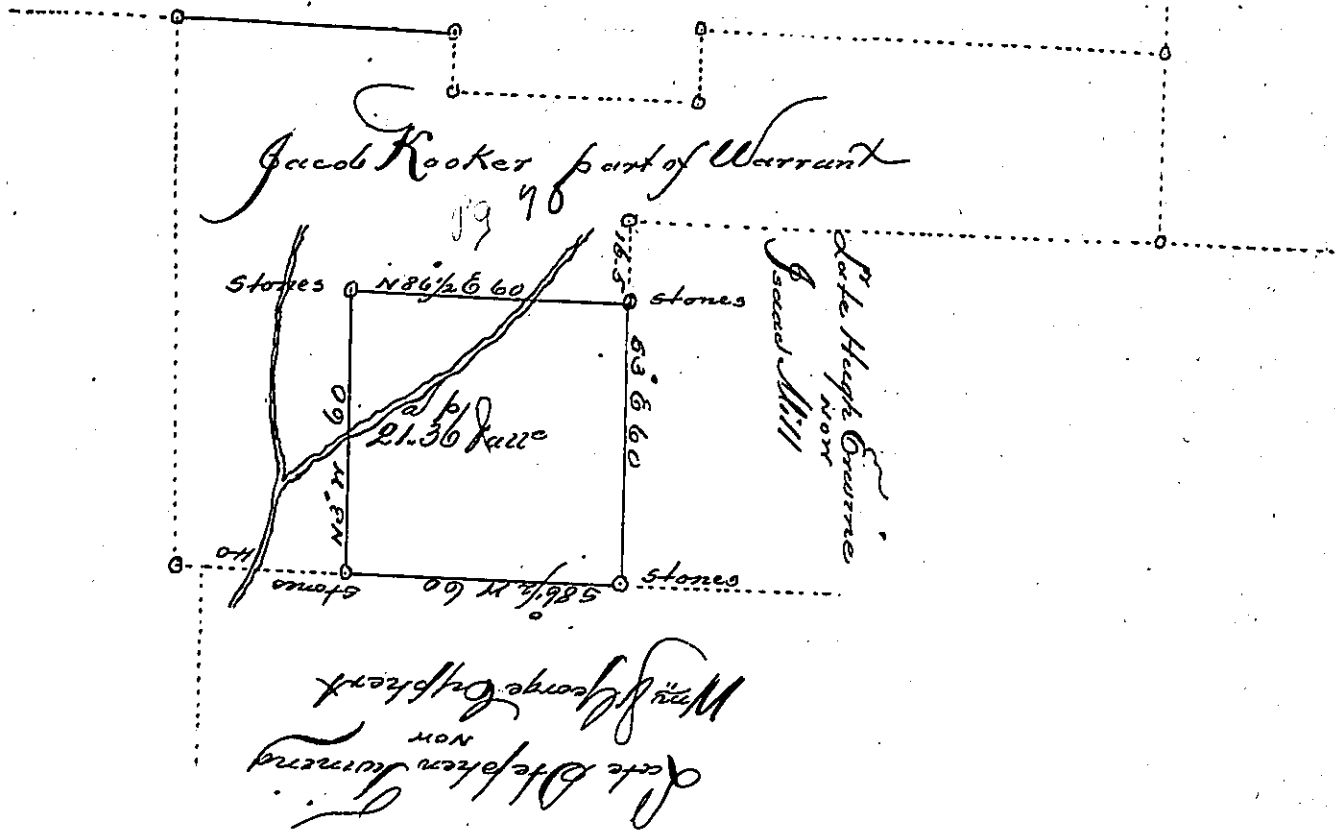 Jacob Kooker part of Warrant
Stones
N 86½ E 60
16.5
Stones
S 3° E 60
21.36
N 3° W 60
40
Stones
S 86½ W 60
Stones
Late Hugh
Now
Isaac Hill
Late Stephen Twining
Now
George Cyphert